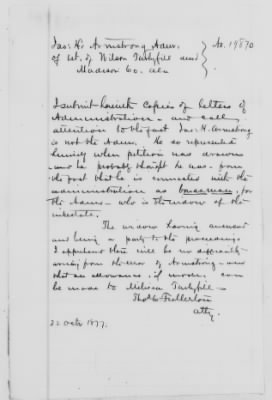 Jas. H. Armstrong Admr.
of Est. of Wilson
Madison Co. Ala
No. 19870
I submit herewith Copies of Letters of
Administration - and call
attention to the fact Jas. H. Armstrong
is not the Admr. He so represented
himself when petition was drawn
and he probably thought he was - from
the fact that he is connected with the
administration as bondsman, for
the Admx - who is the widow of the
intestate.
The widow having answered
and being a party to the proceedings
I apprehend there will be no difficulty
arising from the error of Armstrong - and
that an allowance, if made, can
be made to Melissa
Thos. C. Fullerton
atty.
22 Octr 1877.